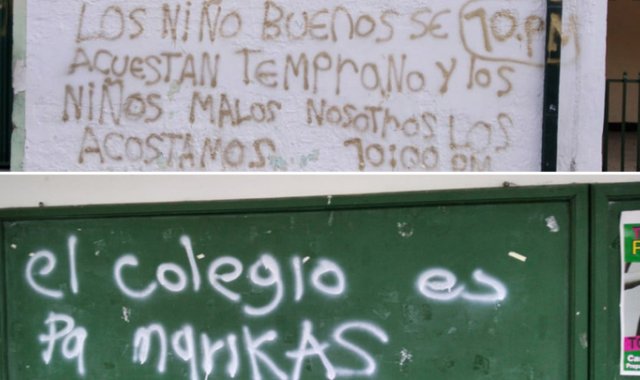 LOS NIÑO BUENOS SE 10.PM
ACUESTAN TEMPRANO Y los
NIÑOS MALOS NOSOTROS LOS
ACOSTAMOS 10:00 PM
el colegio es
Pa marikAS